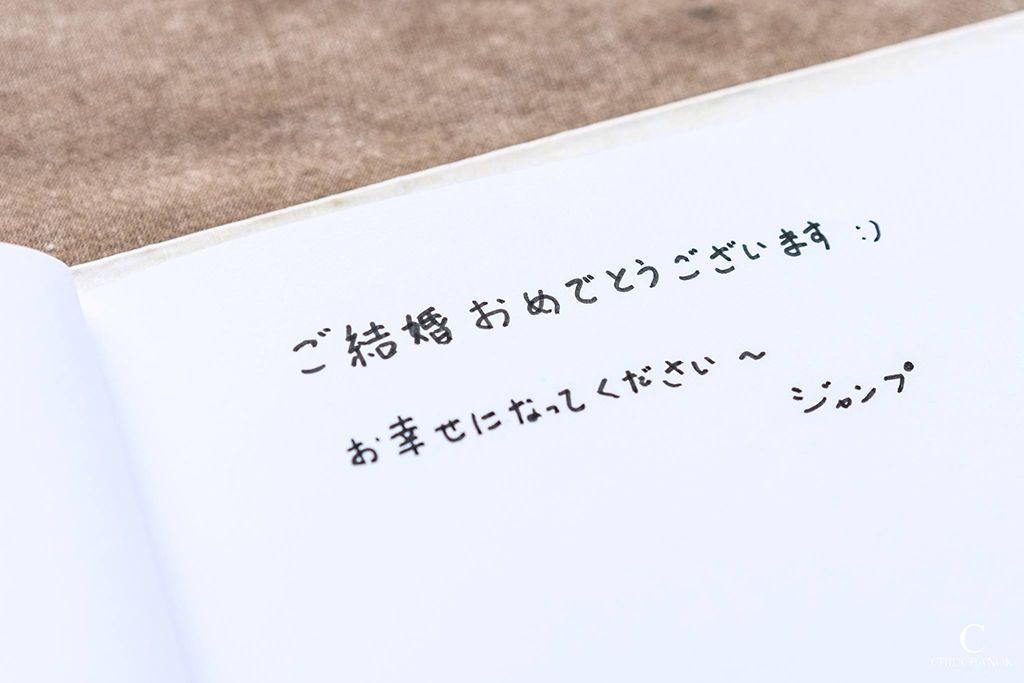 ご結婚おめでとうございます :)
お幸せになってください〜
ジャンプ
C